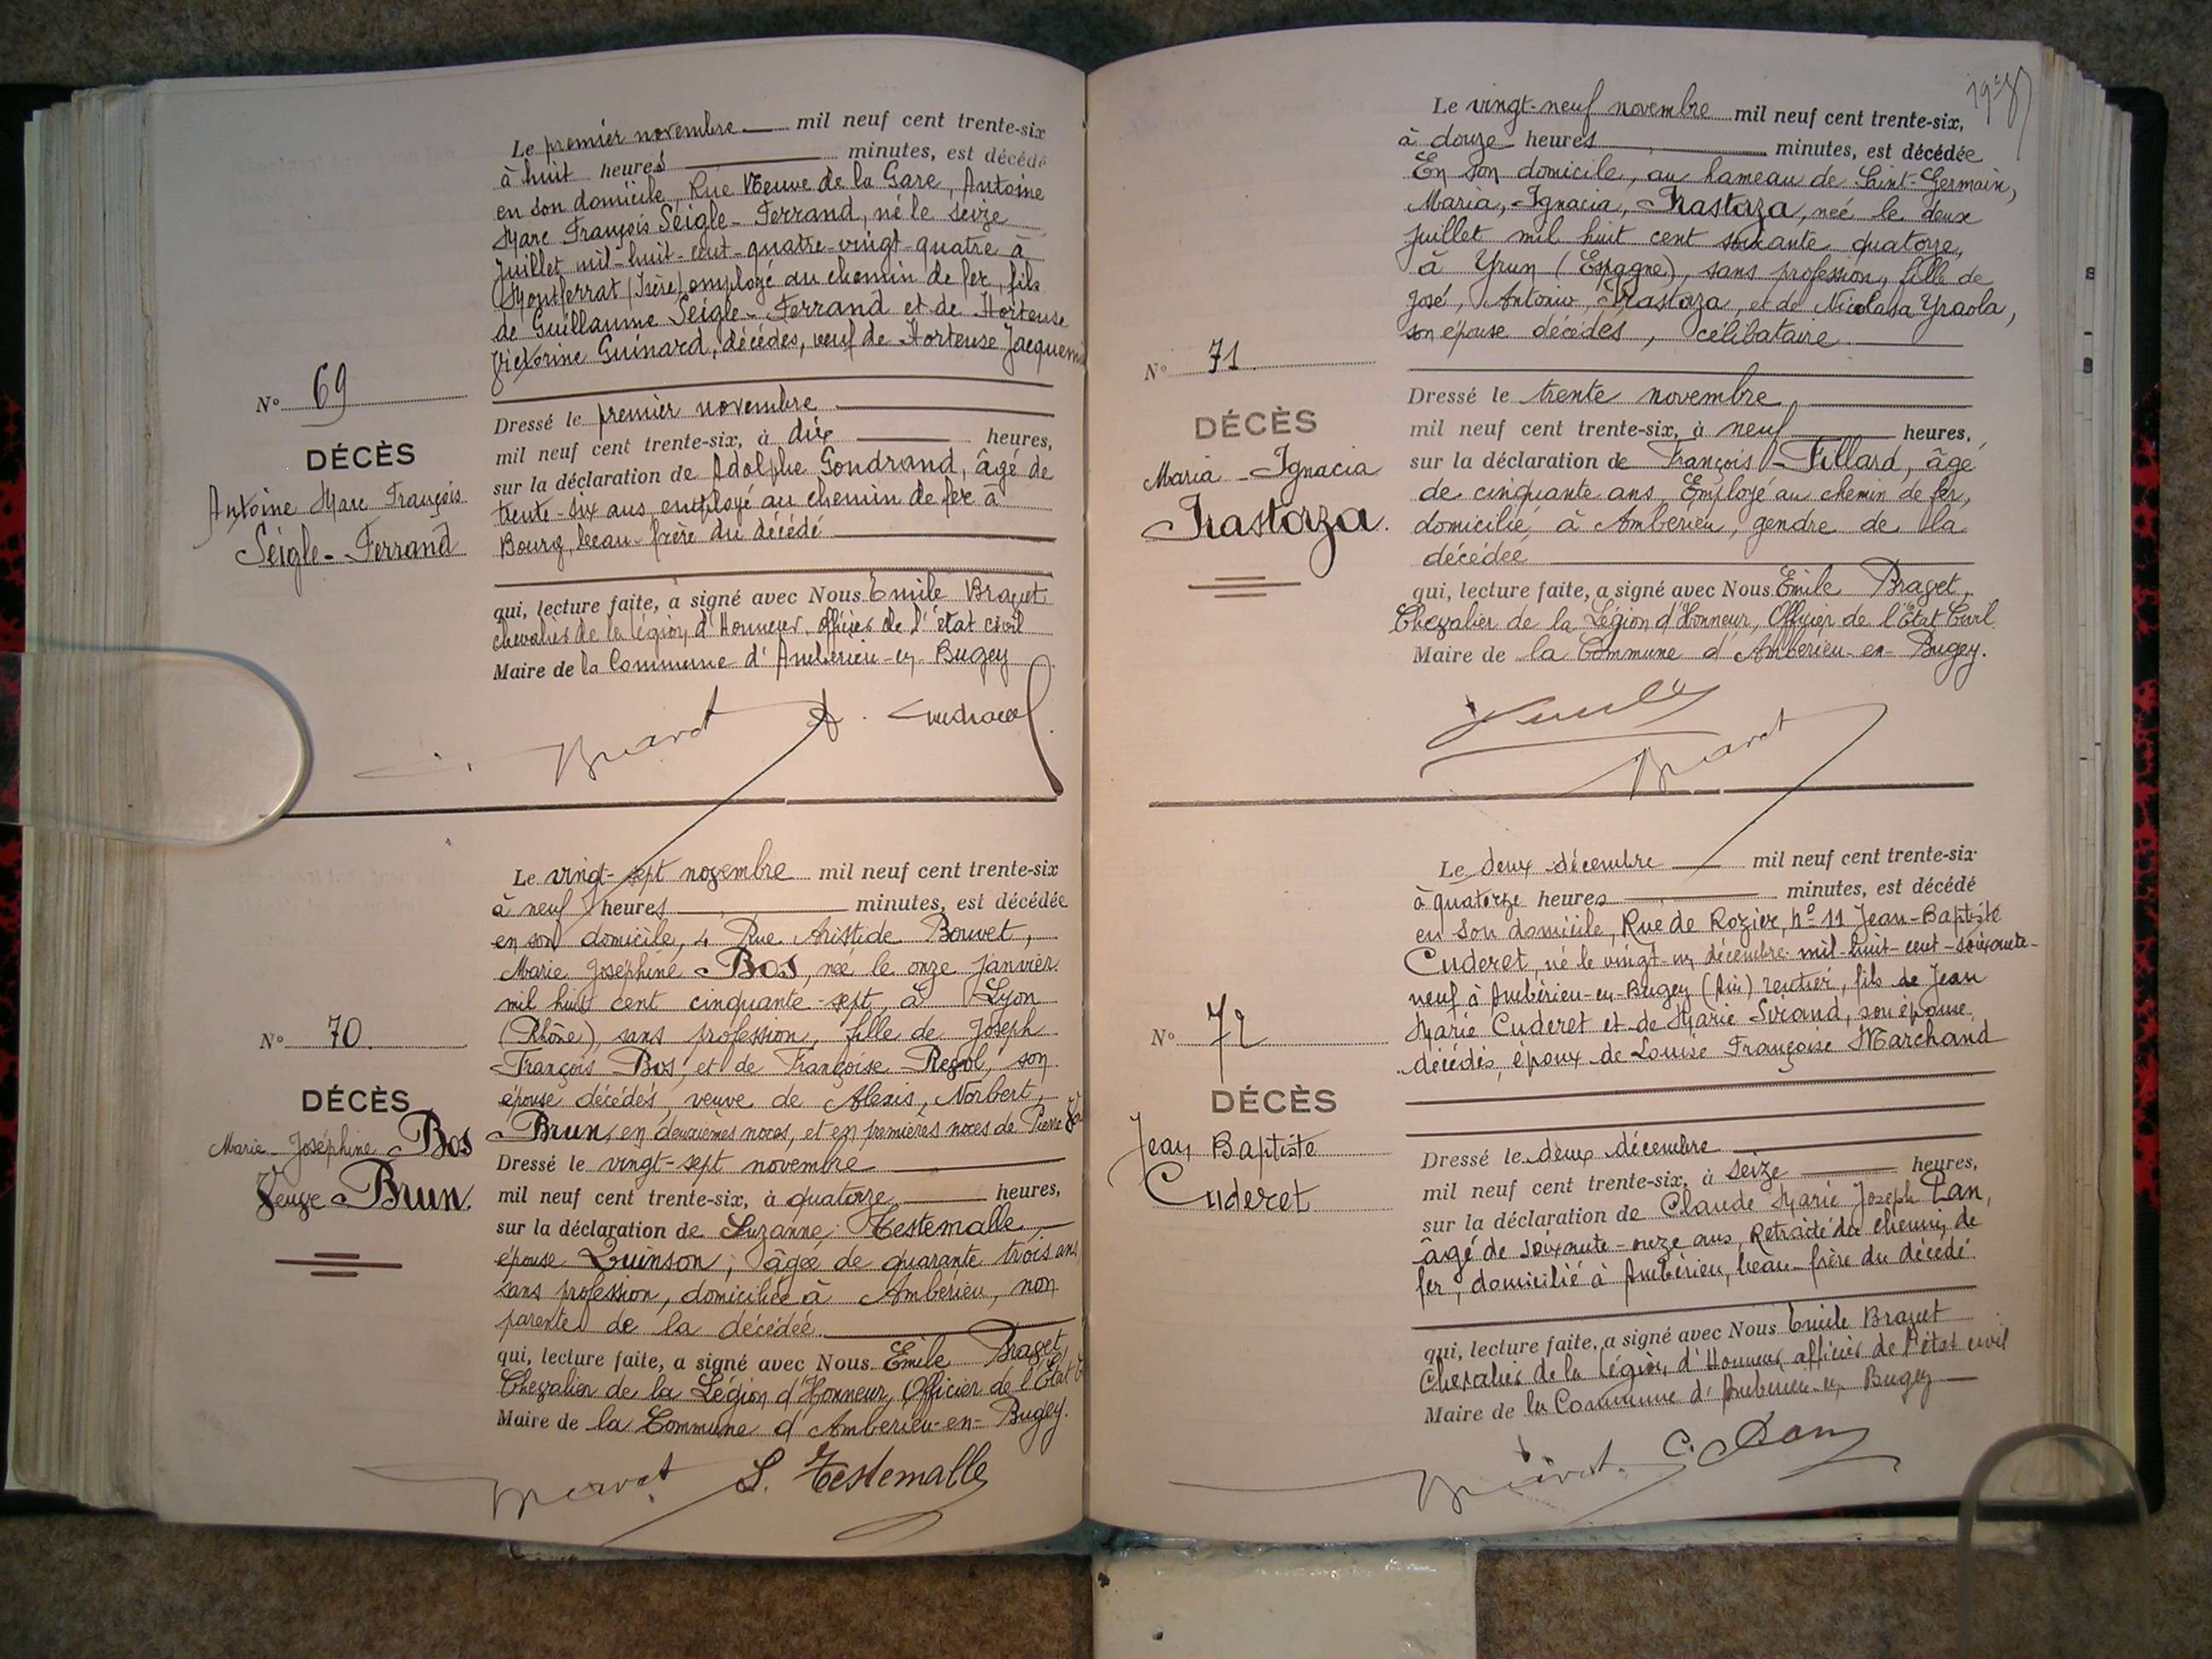 Le premier novembre mil neuf cent trente-six
à huit heures minutes, est décédé
en son domicile, Rue Neuve de la Gare, Antoine
Marc François Seigle-Ferrand, né le seize
Juillet mil-huit-cent-quatre-vingt-quatre à
Montferrat (Isère) employé au chemin de fer, fils
de Guillaume Seigle-Ferrand et de Hortense
Victorine Guinard, décédés, veuf de Hortense
N° 69
DÉCÈS
Antoine Marc François
Seigle-Ferrand
Dressé le premier novembre
mil neuf cent trente-six, à dix heures,
sur la déclaration de Adolphe Gondrand, âgé de
trente-six ans, employé au chemin de fer à
Bourg, beau-frère du décédé
qui, lecture faite, a signé avec Nous Emile Bravet
chevalier de la légion d'Honneur, officier de l'état civil
Maire de la Commune d'Ambérieu-en-Bugey
Bravet
Le vingt-sept novembre mil neuf cent trente-six
à neuf heures minutes, est décédée
en son domicile, 4 Rue Aristide Bouvet,
Marie Joséphine Bos, née le onze janvier
mil huit cent cinquante-sept, à Lyon
(Rhône), sans profession, fille de Joseph
François Bos, et de Françoise son
épouse décédés, veuve de Alexis, Norbert,
Brun, en deuxièmes noces, et en premières noces de Pierre
N° 70.
DÉCÈS
Marie-Joséphine Bos
Veuve Brun.
Dressé le vingt-sept novembre
mil neuf cent trente-six, à quatorze heures,
sur la déclaration de Suzanne Testemalle,
épouse Quinson, âgée de quarante trois ans,
sans profession, domiciliée à Ambérieu, non
parente de la décédée.
qui, lecture faite, a signé avec Nous Emile Bravet,
Chevalier de la Légion d'Honneur, Officier de l'Etat
Maire de la Commune d'Ambérieu-en-Bugey.
Bravet S. Testemalle
Le vingt-neuf novembre mil neuf cent trente-six,
à douze heures minutes, est décédée
En son domicile, au hameau de Saint-Germain,
Maria, Ignacia, Irastorza, née le deux
juillet mil huit cent soixante quatorze,
à Yrun (Espagne), sans profession, fille de
José, Antonio, Irastorza, et de Nicolasa Yraola,
son épouse décédés, célibataire
N° 71.
DÉCÈS
Maria-Ignacia
Irastorza.
Dressé le trente novembre
mil neuf cent trente-six, à neuf heures,
sur la déclaration de François Fillard, âgé
de cinquante ans, Employé au chemin de fer,
domicilié à Ambérieu, gendre de la
décédée
qui, lecture faite, a signé avec Nous Emile Bravet,
Chevalier de la Légion d'Honneur, Officier de l'Etat Civil
Maire de la Commune d'Ambérieu-en-Bugey.
Bravet
Le deux décembre mil neuf cent trente-six
à quatorze heures minutes, est décédé
en son domicile, Rue de Rozier, n° 11 Jean-Baptiste
Cuderet, né le vingt-un décembre mil-huit-cent-soixante-
neuf à Ambérieu-en-Bugey (Ain) rentier, fils de Jean
Marie Cuderet et de Marie Sirand, son épouse
décédés, époux de Louise Françoise Marchand
N° 72
DÉCÈS
Jean Baptiste
Cuderet
Dressé le deux décembre
mil neuf cent trente-six, à seize heures,
sur la déclaration de Claude Marie Joseph Pan,
âgé de soixante-onze ans, Retraité du chemin de
fer, domicilié à Ambérieu, beau-frère du décédé
qui, lecture faite, a signé avec Nous Emile Bravet
Chevalier de la légion d'Honneur officier de l'état civil
Maire de la Commune d'Ambérieu-en-Bugey
Bravet C. Pan